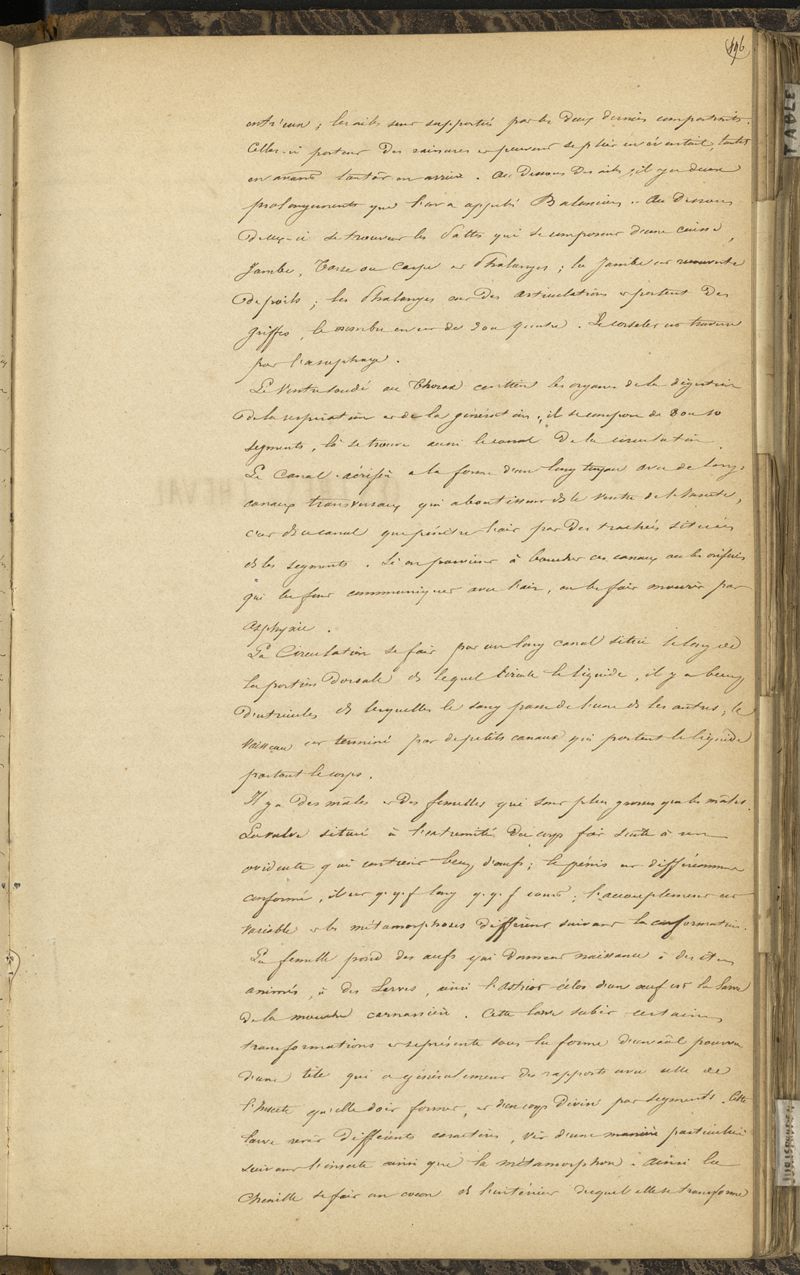 196
entr'eux ; les ailes sont supportées par les deux derniers compartiments.
Celles-ci portent des rainures et peuvent se plier en éventail, tantôt
en avant tantôt en arrière. Au dessous des ailes, il y a deux
prolongements que l'on a appelés Balanciers. Au dessous
de ceux-ci se trouvent les Pattes qui se composent d'une cuisse,
Jambe, Tarse ou Carpe et Phalanges ; la Jambe est recouverte
de poils ; les Phalanges ont des articulations et portent des
griffes, le nombre en est de 3 ou quatre. Le corselet est traversé
par l'œsophage.
Le Ventre soudé au Thorax contient les organes de la digestion
de la respiration et de la génération ; il se compose de 8 ou 10
segments, là se trouve aussi le canal de la circulation.
Le Canal aérifère a la forme d'un long tuyau avec de longs
canaux transversaux qui aboutissent ds le ventre de l'Insecte,
c'est ds ce canal que pénètre l'air par des trachées situées
ds les segments. Si on parvient à boucher ces canaux ou les orifices
qui les font communiquer avec l'air, on les fait mourir par
asphyxie.
La Circulation se fait par un long canal situé le long de
la portion Dorsale ds lequel circule le liquide, il y a beauc.
d'utricules ds lesquelles le sang passe de l'une ds les autres, le
vaisseau est terminé par de petits canaux qui portent le liquide
partout le corps.
Il y a des mâles et des femelles qui sont plus grosses que les mâles.
La vulve située à l'extrémité du corps fait suite à un
oviducte qui contient beauc. d'œufs ; le pénis est différemment
conformé, il est q.q.f long q.q.f court ; l'accouplement est
variable et les métamorphoses diffèrent suivant la conformation.
La femelle pond des œufs qui donnent naissance à des êtres
animés, à des Larves, ainsi l'asticot éclos d'un œuf est la larve
de la mouche carnassière. Cette larve subit certaines
transformations et se présente sous la forme d'un pourvu
d'une tête qui a généralement des rapports avec celle de
l'Insecte qu'elle doit former, et d'un corps divisé par segments. Cette
larve revêt différents caractères, vit d'une manière particulière
suivant l'insecte ainsi que la métamorphose. Ainsi la
Chenille se fait un cocon ds l'intérieur duquel elle se transforme
TABLE
JURISPRUDENCE